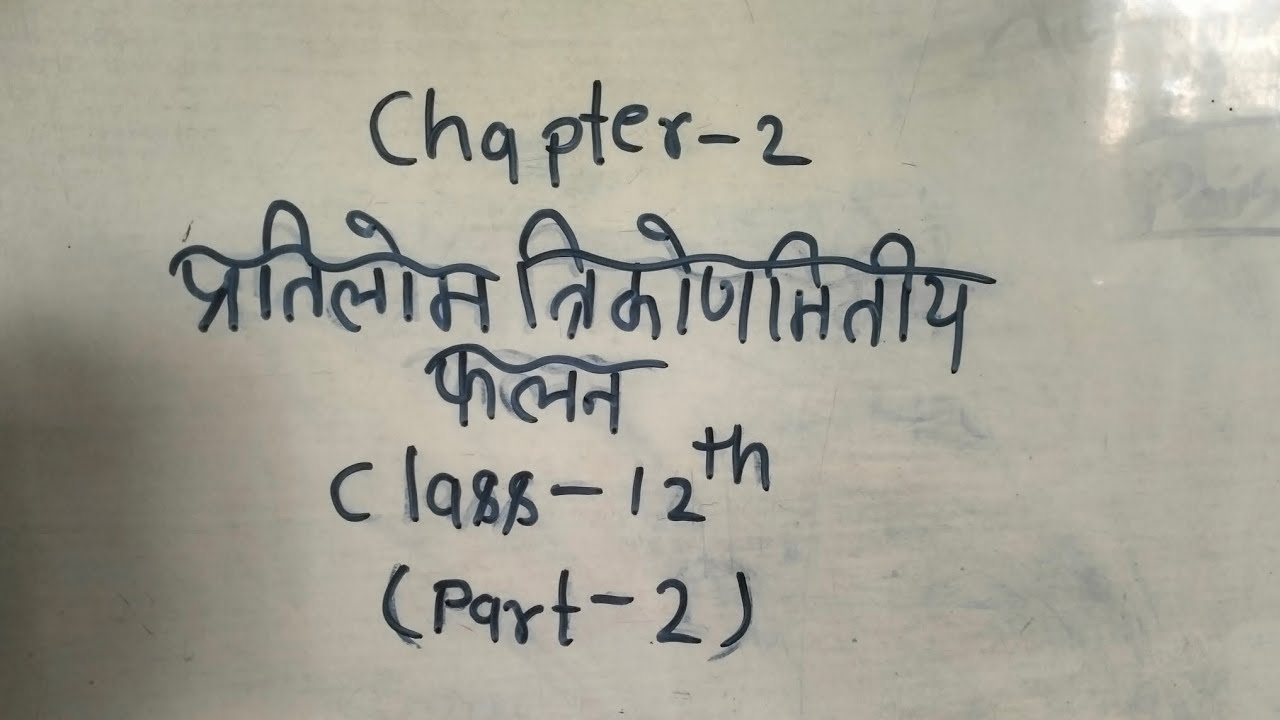 Chapter-2
प्रतिलोम त्रिकोणमितीय
फलन
Class-12th
(Part-2)